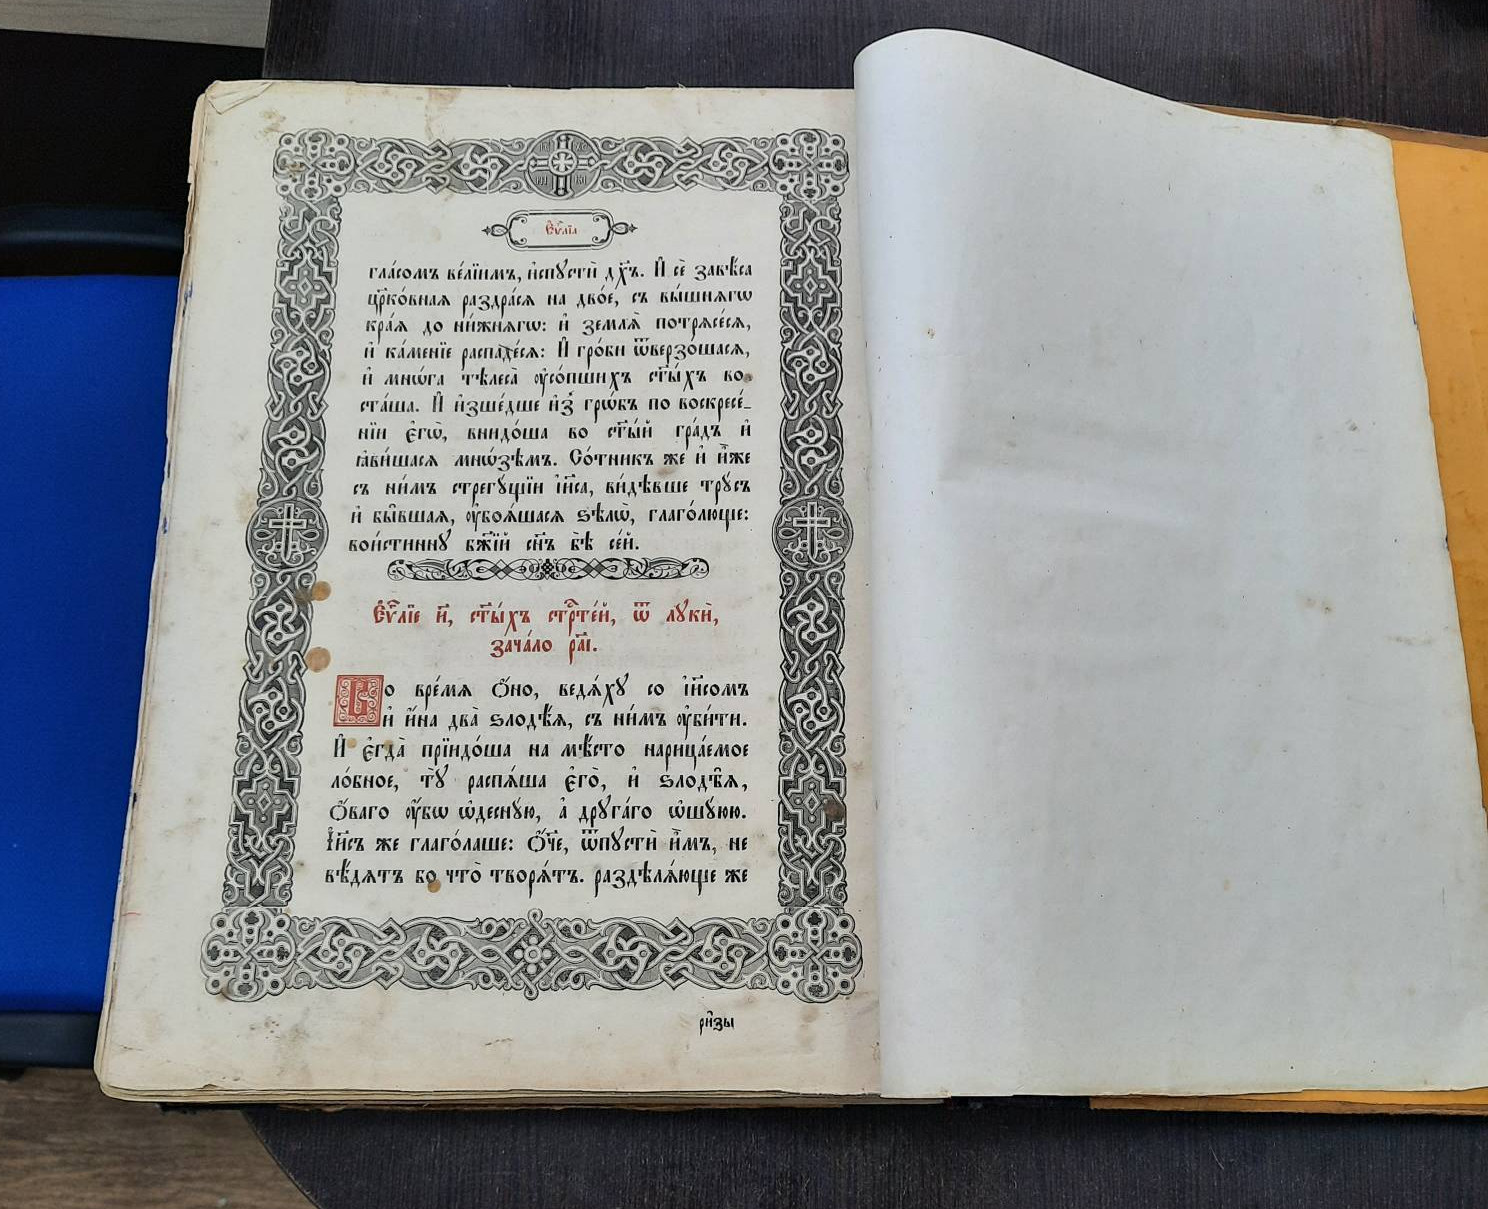 Єѵⷢ҇лїа
гла́сомъ ве́лїимъ, и҆спꙋстѝ дꙋ́хъ. И҆ сѐ завѣ́са
цр҃ко́вная раздра́сѧ на дво́е, съ вы́шнѧгѡ
кра́ѧ до ни́жнѧгѡ: и҆ землѧ̀ потрѧсе́сѧ,
и҆ ка́менїе распаде́сѧ: И҆ гро́би ѿверзо́шасѧ,
и҆ мнѡ́га тѣлеса̀ ᲂу҆со́пшихъ ст҃ы́хъ во
ста́ша. И҆ и҆зше́дше и҆з̾ грѡ́бъ по воскресе́_
нїи є҆гѡ̀, внидо́ша во ст҃ы́й гра́дъ и҆
ꙗ҆ви́шасѧ мнѡ́зѣмъ. Со́тникъ же и҆ и҆̀же
съ ни́мъ стрегꙋ́щїи і҆и҃са, ви́дѣвше трꙋ́съ
и҆ бы̑вшаѧ, ᲂу҆боѧ́шасѧ ѕѣлѡ̀, глаго́люще:
вои́стиннꙋ бж҃їй сн҃ъ бѣ̀ се́й.
Є҆ѵⷢ҇лїе и҃, ст҃ы́хъ стрⷭ҇те́й, ѿ лꙋкѝ,
зача́ло ра҃і.
Во вре́мѧ ѻ҆́но, ведѧ́хꙋ со і҆и҃сомъ
и҆ и҆́на два̀ ѕлодѣ́ѧ, съ ни́мъ ᲂу҆би́ти.
И҆ є҆гда̀ прїидо́ша на мѣ́сто нарица́емое
ло́бное, тꙋ̀ распѧ́ша є҆го̀, и҆ ѕлодѣ̑ѧ,
ѻ҆́ваго ᲂу҆́бѡ ѡ҆деснꙋ́ю, а҆ дрꙋга́го ѡ҆шꙋ́юю.
І҆и҃съ же глаго́лаше: Ѻ҆́ч҃е, ѿпꙋстѝ и҆̀мъ, не
вѣ́дѧтъ бо что̀ творѧ́тъ. раздѣлѧ́юще же
ри̑зы